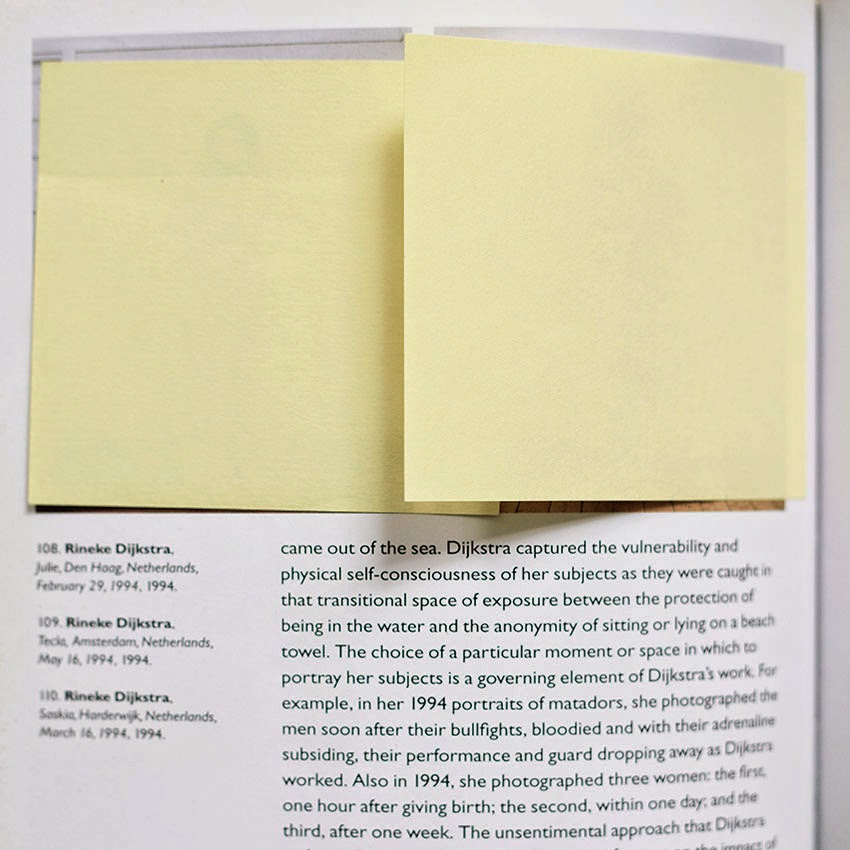 108. Rineke Dijkstra,
Julie, Den Haag, Netherlands,
February 29, 1994, 1994.
109. Rineke Dijkstra,
Tecla, Amsterdam, Netherlands,
May 16, 1994, 1994.
110. Rineke Dijkstra,
Saskia, Harderwijk, Netherlands,
March 16, 1994, 1994.
came out of the sea. Dijkstra captured the vulnerability and
physical self-consciousness of her subjects as they were caught in
that transitional space of exposure between the protection of
being in the water and the anonymity of sitting or lying on a beach
towel. The choice of a particular moment or space in which to
portray her subjects is a governing element of Dijkstra's work. For
example, in her 1994 portraits of matadors, she photographed the
men soon after their bullfights, bloodied and with their adrenaline
subsiding, their performance and guard dropping away as Dijkstra
worked. Also in 1994, she photographed three women: the first,
one hour after giving birth; the second, within one day; and the
third, after one week. The unsentimental approach that Dijkstra
the impact of